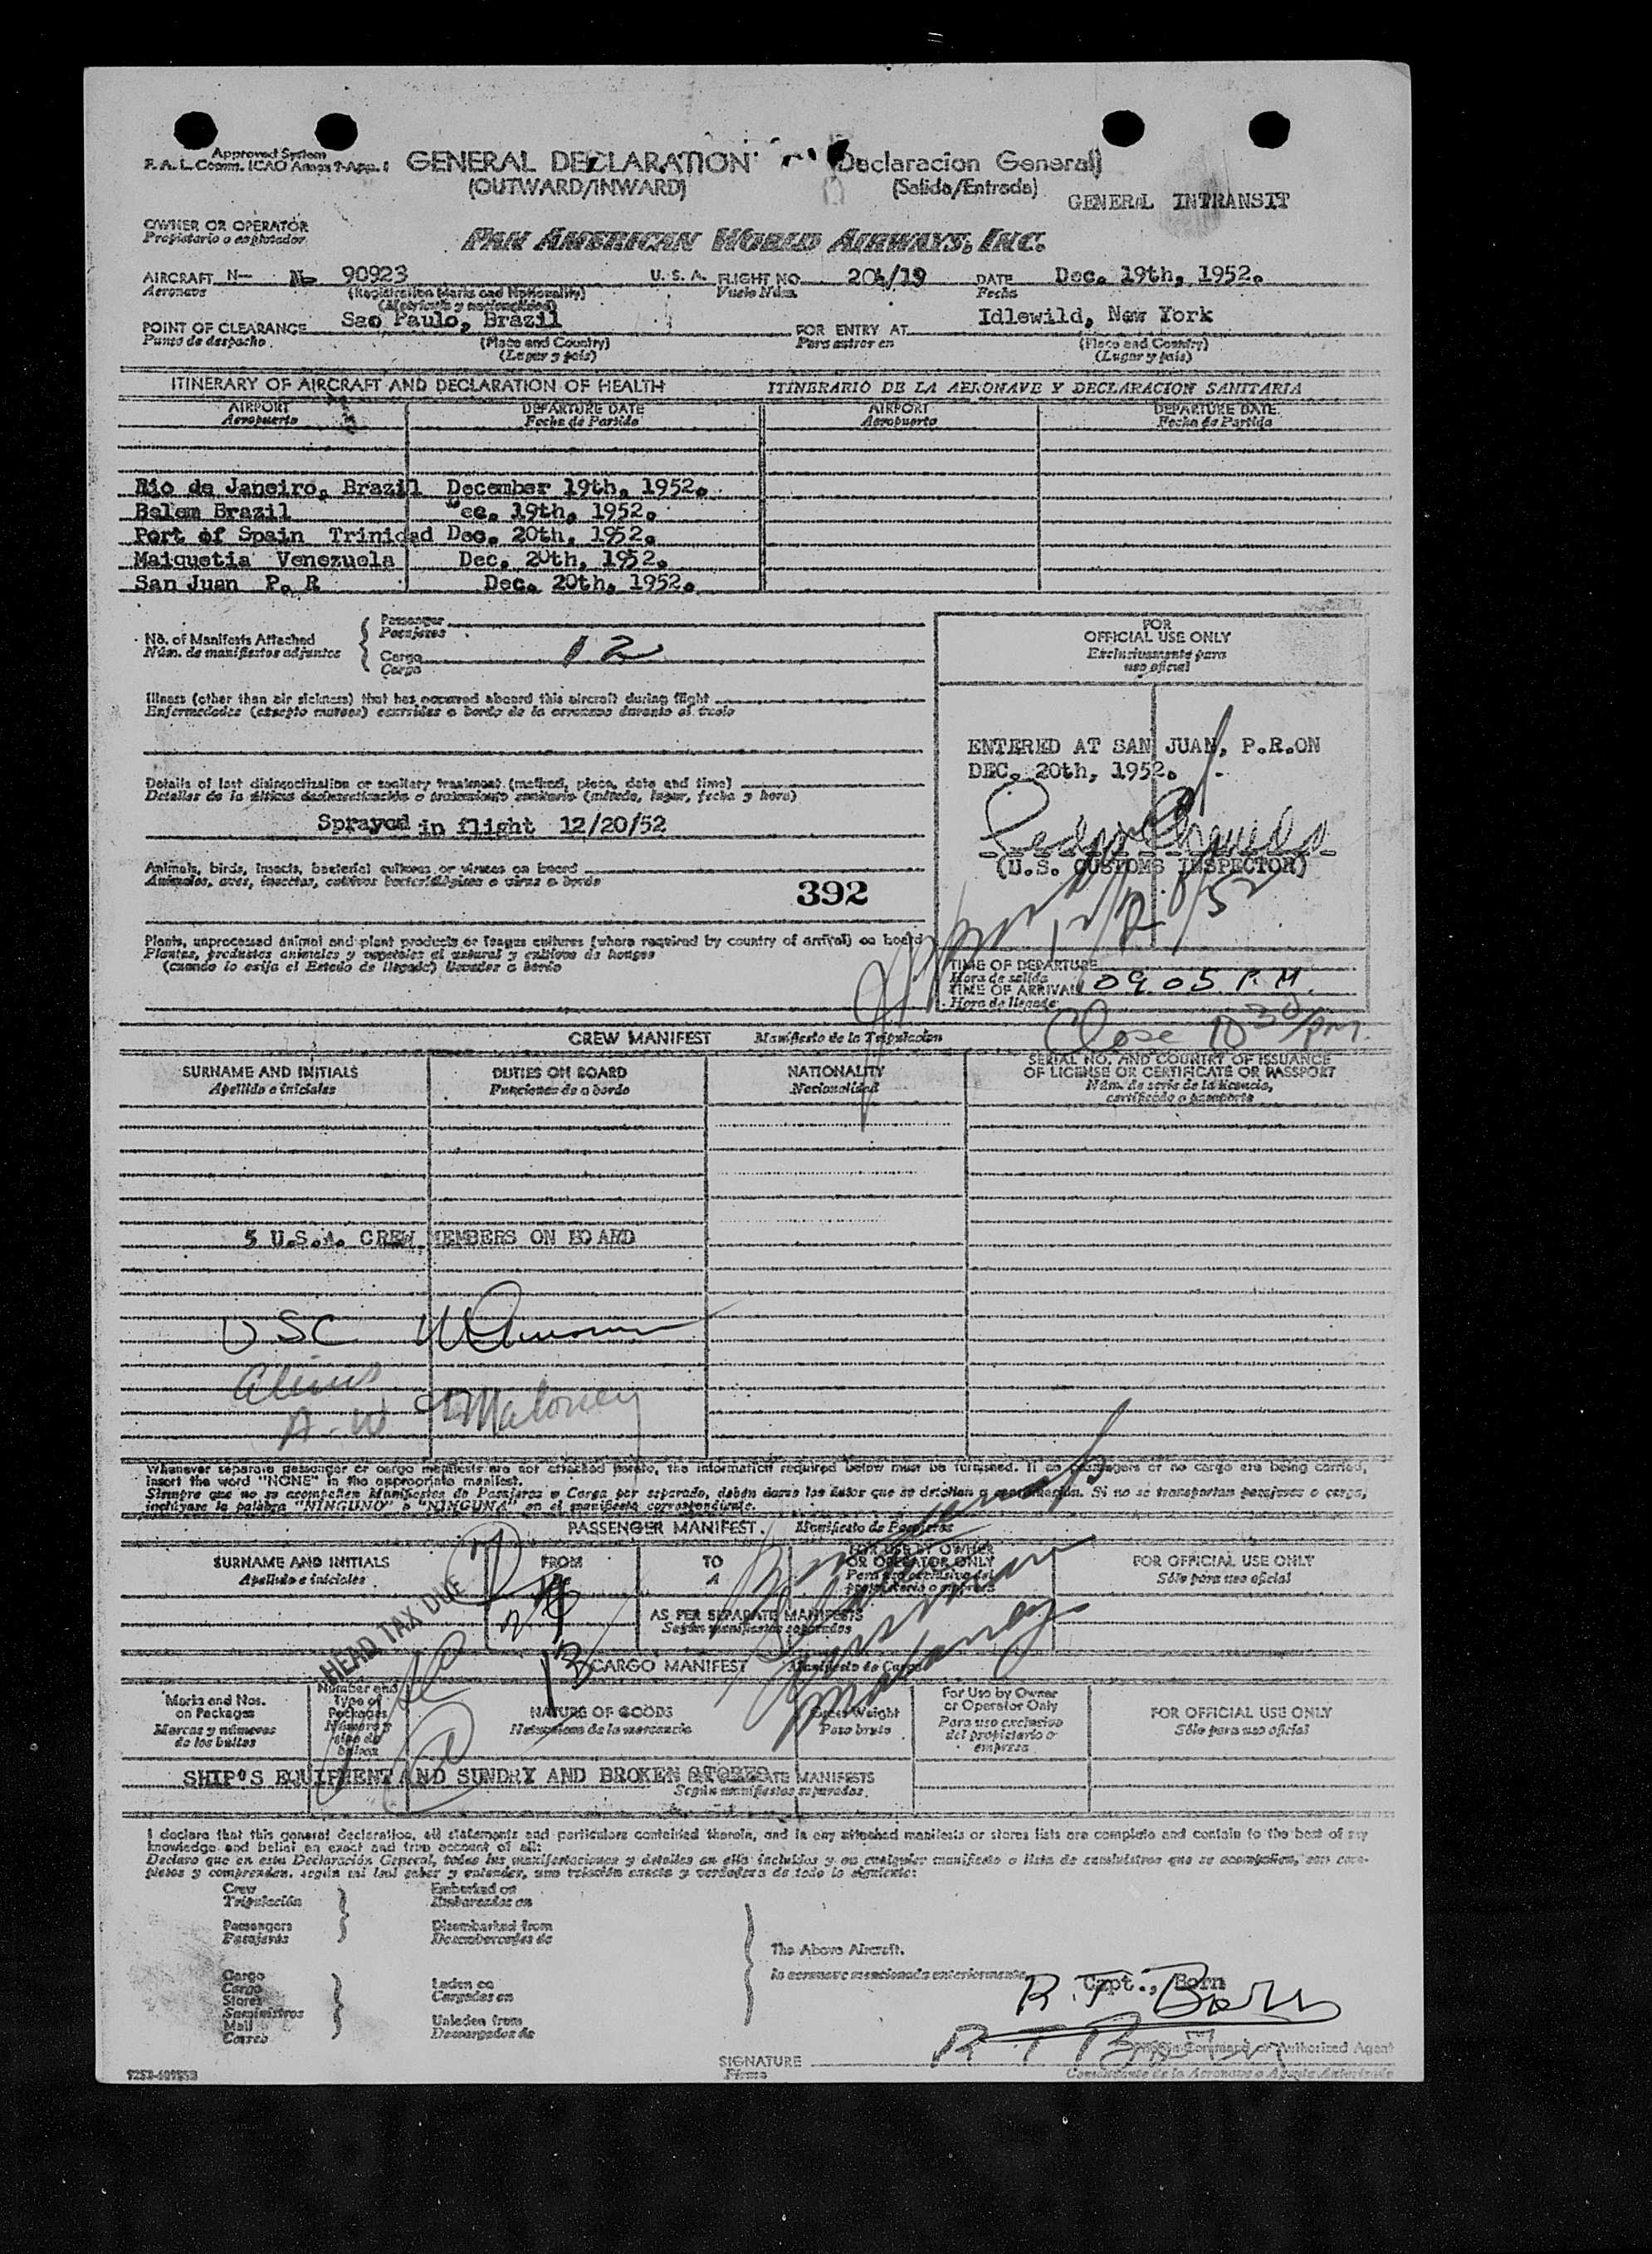 Approved System
F.A.L. Comm. ICAO Annex 9-App. 1
GENERAL DECLARATION
(Declaracion General)
(OUTWARD/INWARD)
(Salida/Entrada)
GENERAL INTRANSIT
OWNER OR OPERATOR
Propietario o explotador
PAN AMERICAN WORLD AIRWAYS, INC.
AIRCRAFT N- N- 90923 U. S. A. FLIGHT NO. 204/19 DATE Dec. 19th, 1952.
Aeronave (Registration Marks and Nationality) Vuelo Núm. Fecha
(Matricula y nacionalidad)
POINT OF CLEARANCE Sao Paulo, Brazil FOR ENTRY AT Idlewild, New York
Punto de despacho (Place and Country) Para entrar en (Place and Country)
(Lugar y país) (Lugar y país)
ITINERARY OF AIRCRAFT AND DECLARATION OF HEALTH ITINERARIO DE LA AERONAVE Y DECLARACION SANITARIA
AIRPORT DEPARTURE DATE AIRPORT DEPARTURE DATE
Aeropuerto Fecha de Partida Aeropuerto Fecha de Partida
Rio de Janeiro, Brazil December 19th, 1952.
Belem Brazil Dec. 19th, 1952.
Port of Spain Trinidad Dec. 20th, 1952.
Maiquetia Venezuela Dec. 20th, 1952.
San Juan P. R Dec. 20th, 1952.
No. of Manifests Attached
Núm. de manifiestos adjuntos
Passenger
Pasajeros
Cargo 12
Cargo
FOR
OFFICIAL USE ONLY
Exclusivamente para
uso oficial
Illness (other than air sickness) that has occurred aboard this aircraft during flight
Enfermedades (excepto mareos) ocurridas a bordo de la aeronave durante el vuelo
ENTERED AT SAN JUAN, P.R.ON
DEC. 20th, 1952.
Details of last disinsectization or sanitary treatment (method, place, date and time)
Detalles de la última desinsectización o tratamiento sanitario (método, lugar, fecha y hora)
Sprayed in flight 12/20/52
(U.S. CUSTOMS INSPECTOR)
Animals, birds, insects, bacterial cultures or viruses on board
Animales, aves, insectos, cultivos bacteriológicos o virus a bordo
392
Plants, unprocessed animal and plant products or fungus cultures (where required by country of arrival) on board
Plantas, productos animales y vegetales al natural y cultivos de hongos
(cuando lo exija el Estado de llegada) llevados a bordo
TIME OF DEPARTURE
Hora de salida
TIME OF ARRIVAL 09.05 P.M.
Hora de llegada
Close 10 30 pm.
CREW MANIFEST Manifiesto de la Tripulacion
SURNAME AND INITIALS DUTIES ON BOARD NATIONALITY SERIAL NO. AND COUNTRY OF ISSUANCE
OF LICENSE OR CERTIFICATE OR PASSPORT
Apellido e iniciales Funciones de a bordo Nacionalidad Núm. de serie de la licencia,
certificado o pasaporte
5 U.S.A. CREW MEMBERS ON BOARD
USC
Aliens
A-W Maloney
Whenever separate passenger or cargo manifests are not attached hereto, the information required below must be furnished. If no passengers or no cargo are being carried,
insert the word "NONE" in the appropriate manifest.
Siempre que no se acompañen Manifiestos de Pasajeros o Carga por separado, deben darse los datos que se detallan a continuación. Si no se transportan pasajeros o carga,
inclúyase la palabra "NINGUNO" o "NINGUNA" en el manifiesto correspondiente.
PASSENGER MANIFEST. Manifiesto de Pasajeros
SURNAME AND INITIALS FROM TO FOR USE BY OWNER
OR OPERATOR ONLY FOR OFFICIAL USE ONLY
Apellido e iniciales De A Para uso exclusivo del
propietario o empresa Sólo para uso oficial
AS PER SEPARATE MANIFESTS
Según manifiestos separados
HEAD TAX DUE
Maloney
CARGO MANIFEST Manifiesto de Carga
Marks and Nos.
on Packages
Marcas y números
de los bultos
Number and
Type of
Packages
Número y
tipo de
bultos
NATURE OF GOODS
Naturaleza de la mercancía
Gross Weight
Peso bruto
For Use by Owner
or Operator Only
Para uso exclusivo
del propietario o
empresa
FOR OFFICIAL USE ONLY
Sólo para uso oficial
SHIP'S EQUIPMENT AND SUNDRY AND BROKEN STORES
Según manifiestos separados
I declare that this general declaration, all statements and particulars contained therein, and in any attached manifests or stores lists are complete and contain to the best of my
knowledge and belief an exact and true account of all:
Declaro que en esta Declaración General, todas las manifestaciones y detalles en ella incluídos y en cualquier manifiesto o lista de suministros que se acompañen, son com-
pletos y comprenden, según mi leal saber y entender, una relación exacta y verdadera de todo lo siguiente:
Crew
Tripulación
Passengers
Pasajeros
Embarked on
Embarcados en
Disembarked from
Desembarcados de
Cargo
Cargo
Stores
Suministros
Mail
Correo
Laden on
Cargados en
Unladen from
Descargados de
The Above Aircraft.
la aeronave mencionada anteriormente
Capt., Born
R. F. Born
SIGNATURE
Firma
Pilot in Command or Authorized Agent
Comandante de la Aeronave o Agente Autorizado